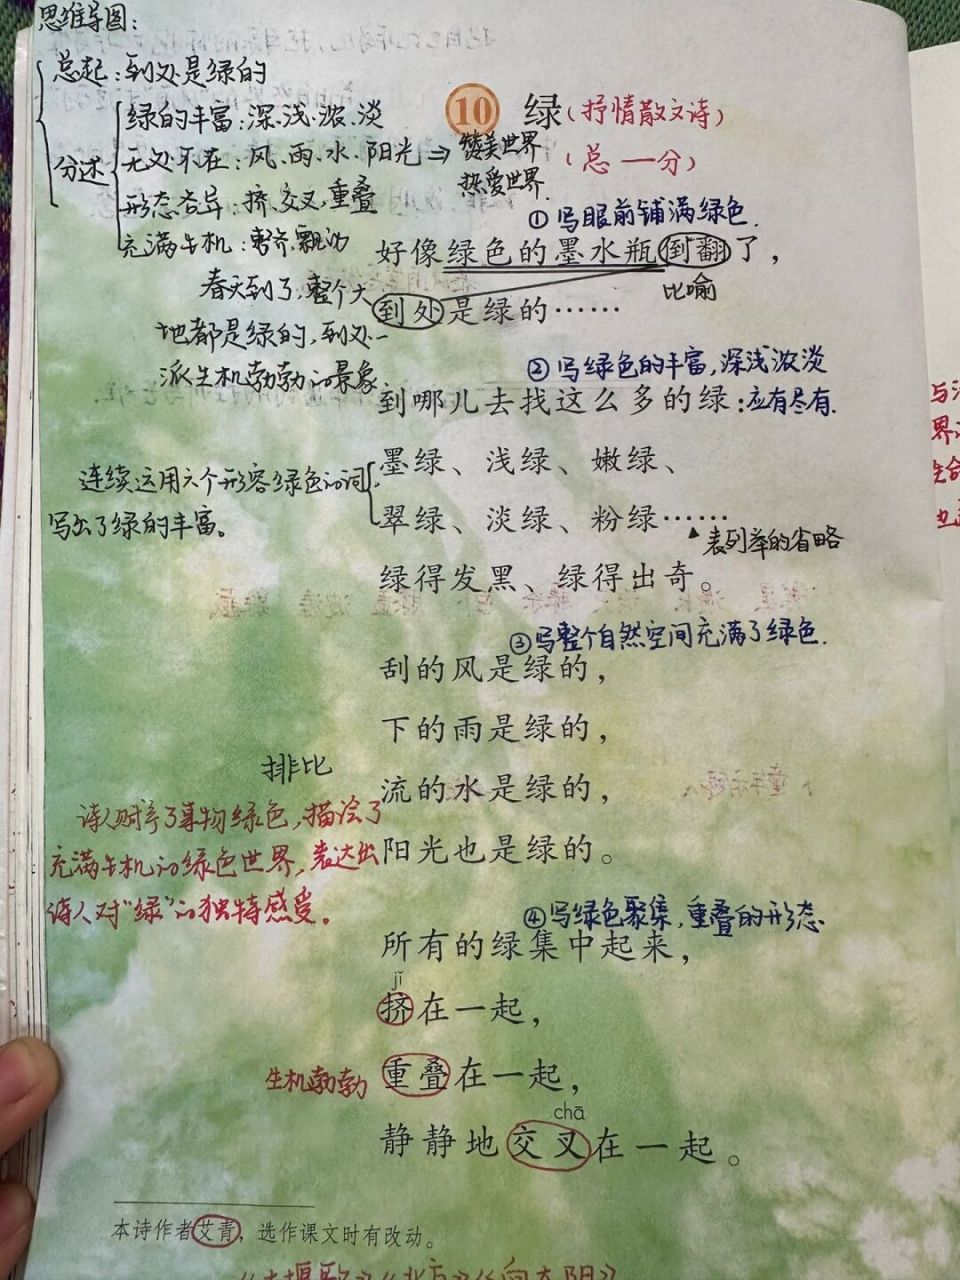 思维导图：
总起：到处是绿的
分述
绿的丰富：深、浅、浓、淡
无处不在：风、雨、水、阳光⇒赞美世界
热爱世界.
形态各异：挤、交叉,重叠
充满生机：整齐,飘动
10 绿(抒情散文诗)
(总一分)
①写眼前铺满绿色.
好像绿色的墨水瓶倒翻了，
比喻
到处是绿的……
春天到了,整个大
地都是绿的,到处一
派生机勃勃的景象
②写绿色的丰富,深浅浓淡
到哪儿去找这么多的绿：应有尽有.
墨绿、浅绿、嫩绿、
翠绿、淡绿、粉绿……
▲表列举的省略
连续运用六个形容绿色的词,
写出了绿的丰富。
绿得发黑、绿得出奇。
③写整个自然空间充满了绿色.
刮的风是绿的，
下的雨是绿的，
流的水是绿的，
阳光也是绿的。
排比
诗人赋予了事物绿色,描绘了
充满生机的绿色世界,表达出
诗人对"绿"的独特感受。
④写绿色聚集,重叠的形态.
所有的绿集中起来，
jǐ
挤在一起，
生机勃勃
重叠在一起，
chā
静静地交叉在一起。
本诗作者艾青，选作课文时有改动。